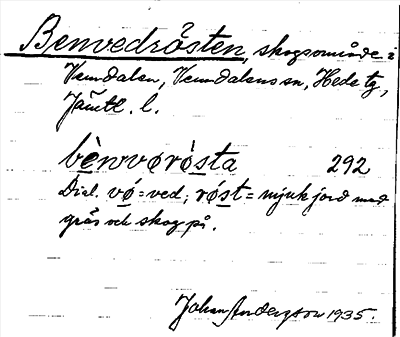 Benvedrösten, skogsområde i
Vemdalen, Vemdalens sn, Hede tg,
Jämtl. l.
bènvørösta 292
Dial. vø = ved; röst = mjuk jord med
gräs och skog på.
Johan Andersson 1935.